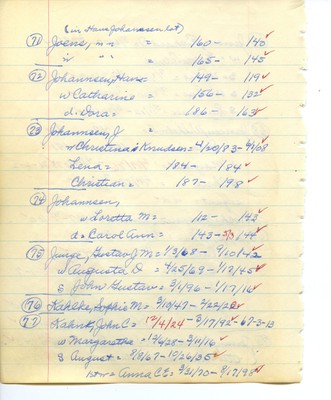 (in Hans Johannsen lot)
71 Joens, " " = 160 - 140
" " " = 165 - 145
72 Johannsen, Hans = 149 - 119
w Catharine = 156 - 132
d. Dora = 186 - 163
73 Johannsen, J =
w Christina Knudsen = 4/20/83 - 9/1/08
Lena = 184 - 184
Christian = 187 - 198
74 Johannsen,
w Loretta M = 112 - 143
d = Carol Ann = 143 - 5/3 144
75 Junge, Gustav J M = 1/3/68 - 9/20/42
w Augusta D = 4/25/69 - 1/17/45
S John Gustav = 3/4/96 - 1/17/16
76 Kahlke, Sophie M = 3/10/47 - 2/22/20
77 Kahnk, John C = 12/4/24 - 3/17/92 - 67-3-13
w Margaretha = 12/6/28 - 3/11/16
S August = 9/9/67 - 10/26/35
1st w = Anna C E = 3/31/70 - 9/17/95